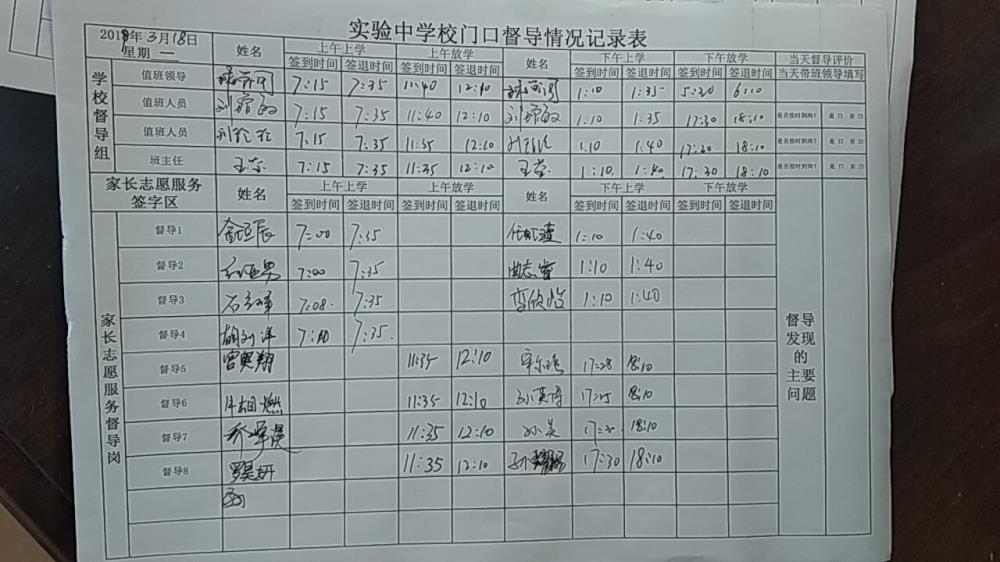 实验中学校门口督导情况记录表
2019年3月18日
星期 一
姓名 上午上学 上午放学 姓名 下午上学 下午放学 当天督导评价
签到时间 签退时间 签到时间 签退时间 签到时间 签退时间 签到时间 签退时间 当天带班领导填写
学校督导组
值班领导 7:15 7:35 11:40 12:10 1:10 1:35 5:30 6:10
值班人员 7:15 7:35 11:40 12:10 1:10 1:35 17:30 18:10 是否按时到岗? 是口 否口
值班人员 7:15 7:35 11:35 12:10 1:10 1:40 17:30 18:10 是否按时到岗? 是口 否口
班主任 7:15 7:35 11:35 12:10 1:10 1:40 17:30 18:10 是否按时到岗? 是口 否口
家长志愿服务签字区 姓名 上午上学 上午放学 姓名 下午上学 下午放学
签到时间 签退时间 签到时间 签退时间 签到时间 签退时间 签到时间 签退时间
家长志愿服务督导岗
督导1 7:00 7:35 1:10 1:40
督导2 7:00 7:35 1:10 1:40
督导3 7:08 7:35 李欣怡 1:10 1:40
督导4 胡刘洋 7:10 7:35
督导5 宫奥翔 11:35 12:10 17:28 18:10
督导6 11:35 12:10 孙英博 17:25 18:10
督导7 11:35 12:10 孙美 18:10
督导8 11:35 12:10 17:30 18:10
督导发现的主要问题